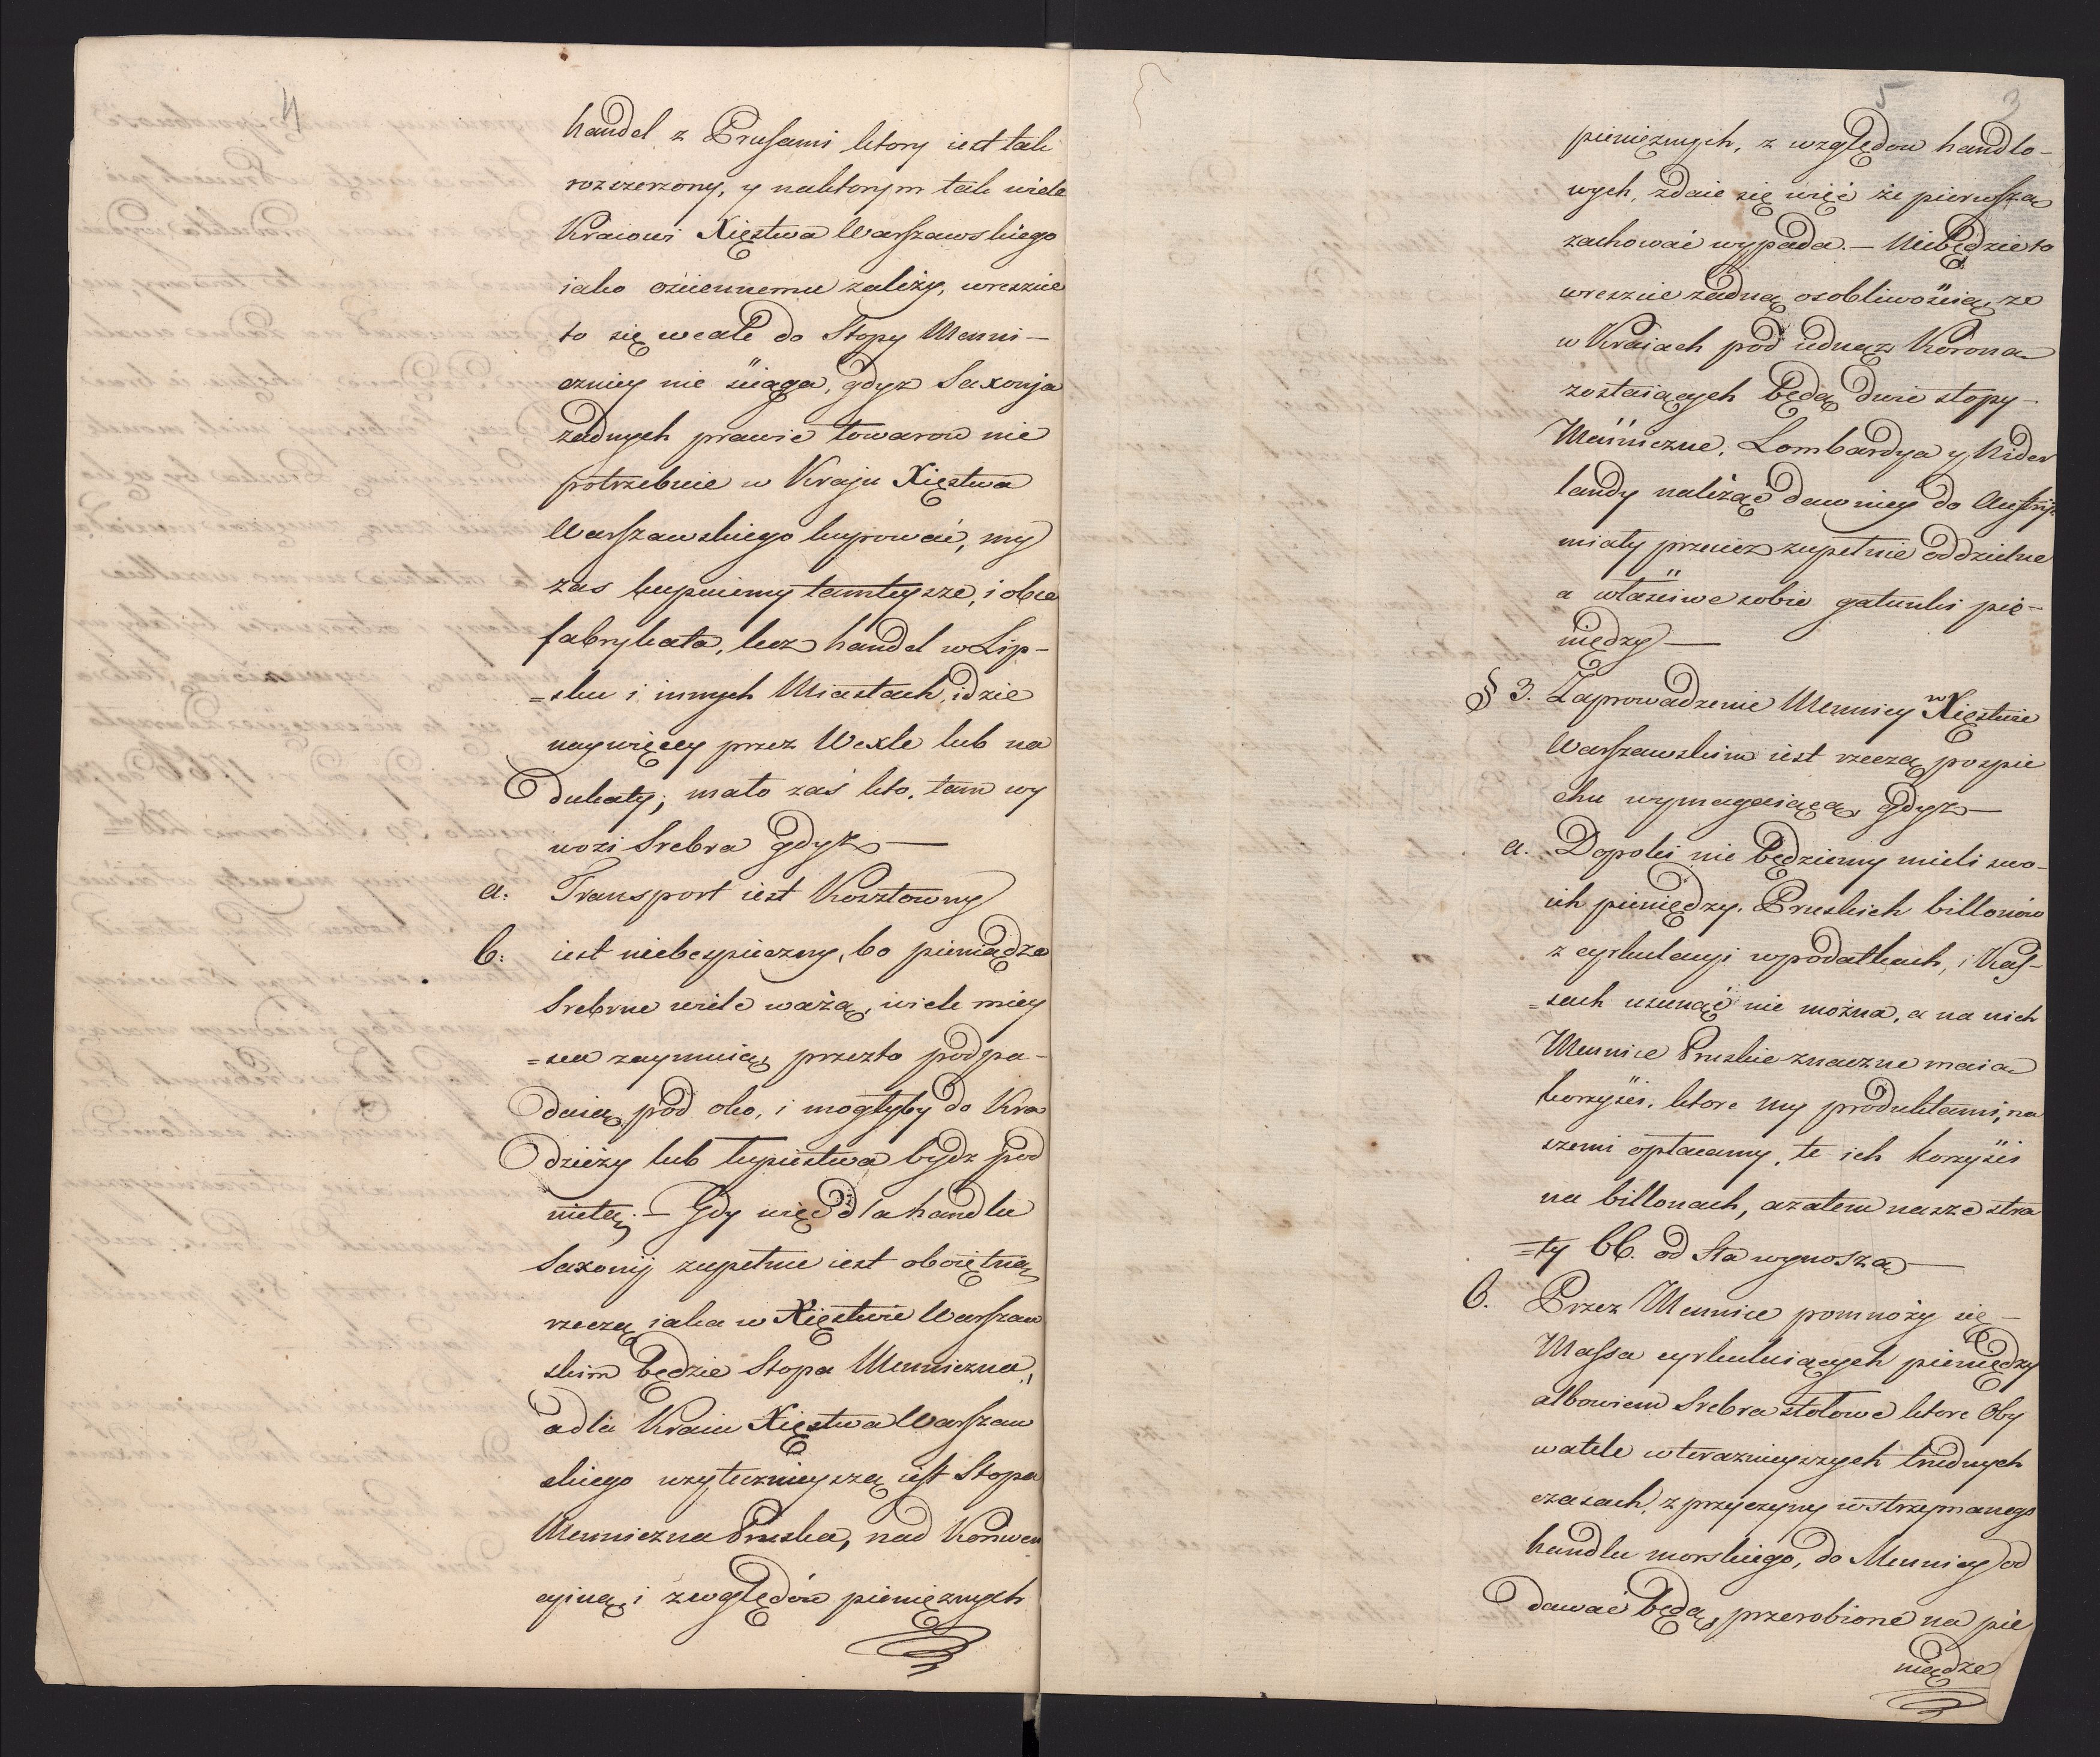 4
handel z Prusami ktory iest tak
rozszerzony, y naktorym tak wiele
Kraiowi Xięstwa Warszawskiego
iako ościennemu zależy, wreszcie
to się wcale do Stopy Menni-
czney nie ściąga, gdyż Saxonja
żadnych prawie towarow nie
potrzebuie w Kraju Xięstwa
Warszawskiego kupować, my
zas kupuiemy tamteysze, i obce
fabrykata, lecz handel w Lip-
=sku i innych Miastach, idzie
naywięcey przez Wexle lub na
Dukaty; mało zaś kto, tam wy
wozi Srebra gdyż —
a: Transport iest Kosztowny
b: iest niebespieczny, bo pieniądze
Srebrne wiele ważą, wiele miey
=sca zaymuią, przezto podpa-
daią pod oko, i mogłyby do Kra
dzieży lub łupiestwa bydz pod
nietą; — Gdy więc dla handlu
Saxonij zupełnie iest oboiętną
rzeczą iaka w Xięstwie Warszaw
skim będzie Stopa Menniczna,
adla Kraiu Xięstwa Warszaw
skiego użytecznieyszą iest Stopa
Mennicza Pruska, nad Konwen
cyiną, i zwględów pieniężnych
5 3
pieniężnych, z względow handlo-
wych, zdaie się więc że pierwszą
zachować wypada. — Niebędzie to
wreszcie żadną osobliwością, że
w Kraiach pod iedną Koroną
zostaiących będą dwie stopy
Mennicze. Lombardya y Nider
landy należąc dawniey do Austryi
miały przeciez zupełnie oddzielne
a właściwe sobie gatunki pie-
niędzy —
§ 3. Zaprowadzenie Mennicy w Xięstwie
Warszawskim iest rzeczą pospie
chu wymagaiącą, gdyż —
a. Dopoki nie będziemy mieli swo-
ich pieniędzy, Pruskich billonów
z cyrkulacyi wpodatkach, i Kas-
=sach usunąć nie można, a na nich
Mennice Pruskie znaczne maia
korzyści, ktore my produktami, na
szemi opłacamy, te ich korzyści
na billonach, azatem nasze stra
=ty 66. od Sta wynoszą —
b. Przez Mennice pomnoży się —
Massa cyrkuluiących pieniędzy
albowiem Srebra stołowe ktore Oby
watele wterazniejszych trudnych
czasach, z przyczyny wstrzymanego
handlu morskiego, do Mennicy od
dawać będą, przerobione na pie
niądze